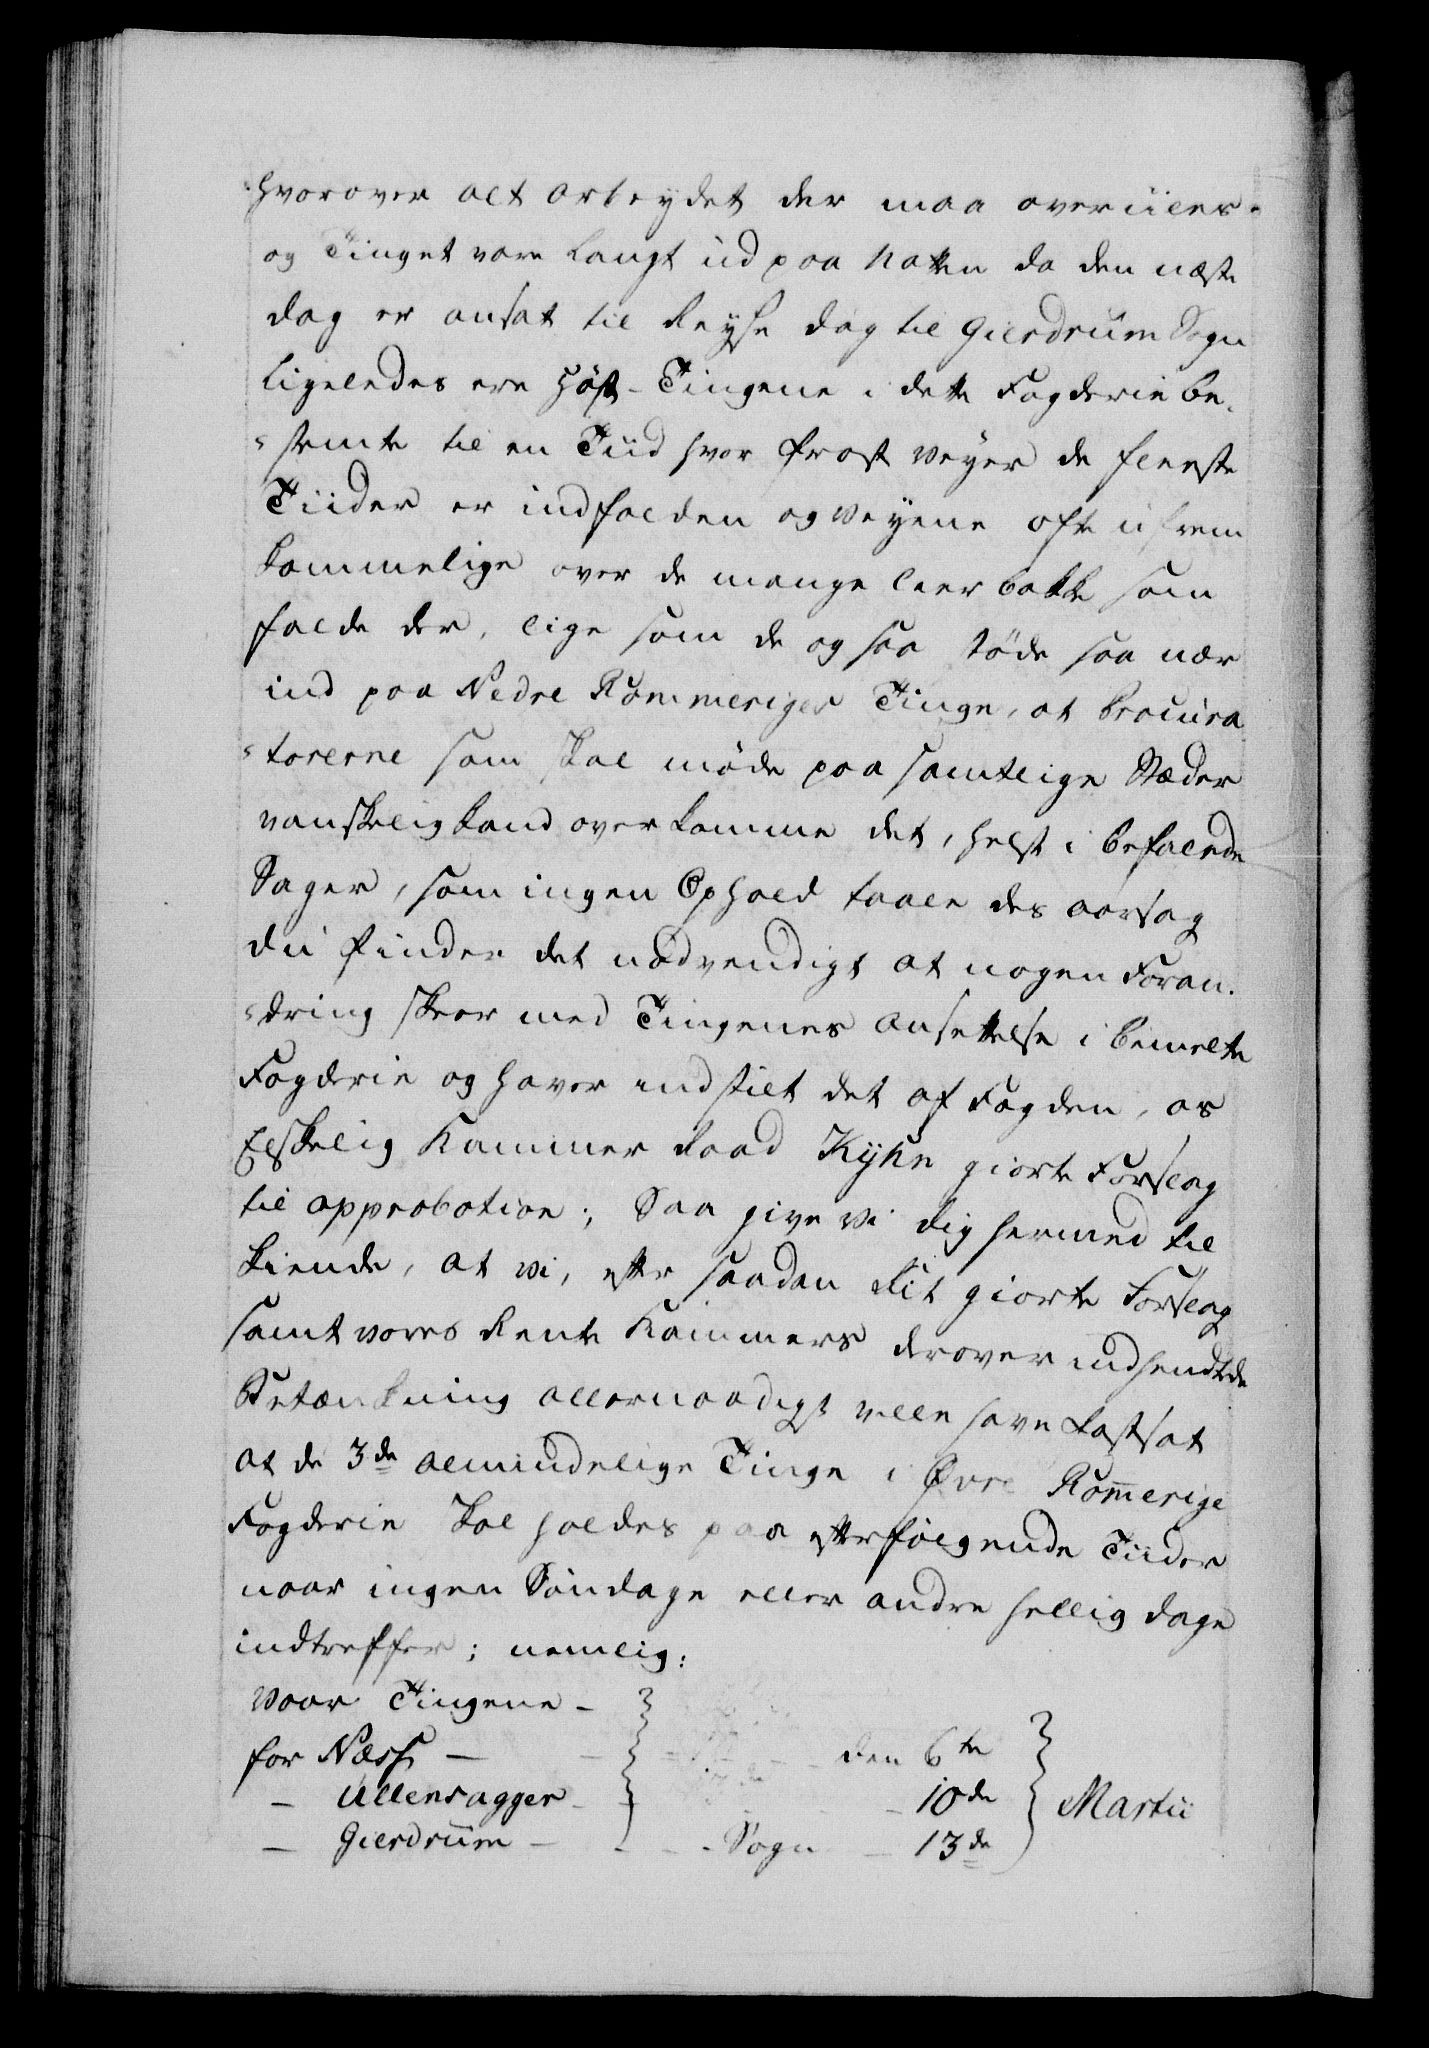 hvorover alt arbeydet der maa overiiles
og Tinget vare langt ud paa Natten da den næste
dag er ansat til Reyse dag til Gierdrum Sogn
ligeledes ere Høst-Tingene i dette Fogderie be-
stemte til en Tiid hvor frost veyer de fleeste
Tiider er indfalden og veyene ofte ufrem
kommelige over de mange leer bakke som
falde der, lige som de og saa støde saa nær
ind paa Nedre Rommeriges Tinge, at Procura
torerne som skal møde paa samtlige Stæder
vanskelig kand overkomme det, helst i befalede
Sager, som ingen Ophold taale des aarsag
du finder det nødvendigt at nogen Foran-
dring skeer med Tingenes ansettelse i bemelte
Fogderie og haver indstilt det af Fogden, os
Elskelig Kammer Raad Kyhn giorte Forslag
til approbation; Saa give vi dig hermed til
kiende, at vi, efter saadan dit giorte Forslag
samt vores Rente Kammers derover indsendte
Betænkning allernaadigst ville have fastsat
at de 3de almindelige Tinge i Øvre Rom̅erige
Fogderie skal holdes paa efterfølgende Tiider
naar ingen Søndage eller andre hellig dage
indtreffer; nemlig:
Vaar Tingene -
for Næss - den 6te
- Ullensagger - 10de } Martii
- Gierdrum - Sogn - 13de